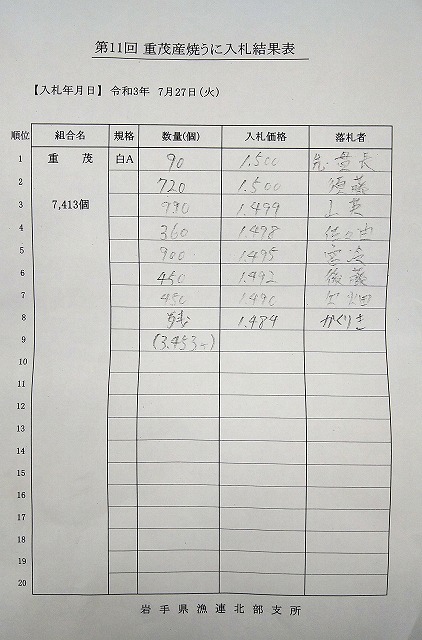 第11回 重茂産焼うに入札結果表
【入札年月日】 令和3年 7月27日(火)
順位 組合名 規格 数量(個) 入札価格 落札者
1 重茂 白A 90 1.500
2 720 1.500 須藤
3 7,413個 990 1.499 山英
4 360 1.498 佐々由
5 900 1.495
6 450 1.492 後藤
7 450 1.490
8 残 1.484 かくりき
9 (3.453コ)
10
11
12
13
14
15
16
17
18
19
20
岩手県漁連北部支所